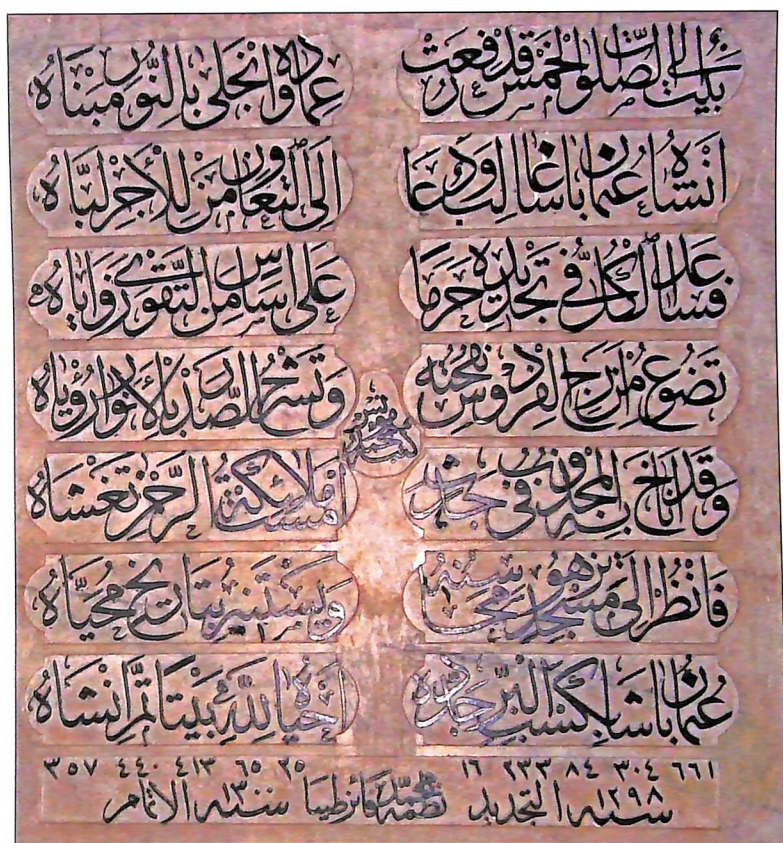 بيت الى الصلوات الخمس قد رفعت عماده وانجلى بالنور مبناه
انشاه عثمان باشا غالب ودعا الى التعاون من للأجر لباه
فساعد الكل في تجديده حرما على اساس من التقوى زواياه
تضوع من ارج الفردوس نفحته وتشرح الصدر بالأنوار رؤياه
وقد اناخ به المجذوب في جدث امست ملائكة الرحمن تغشاه
فانظر الى مسجد تزهو محاسنه ويستنير بتاريخ محياه
عثمان باشا بكسب البر جدده احياه لله بيتا تم انشاه
٦٦١ ٣٠٤ ٨٤ ٢٣٣ ١٦ ٢٥ ٦٥ ٤١٣ ٤٤٠ ٣٥٧
سنه ١٢٩٨ التجديد نظمه محمد فائز طيبا سنه ١٣٠٠ الاتمام